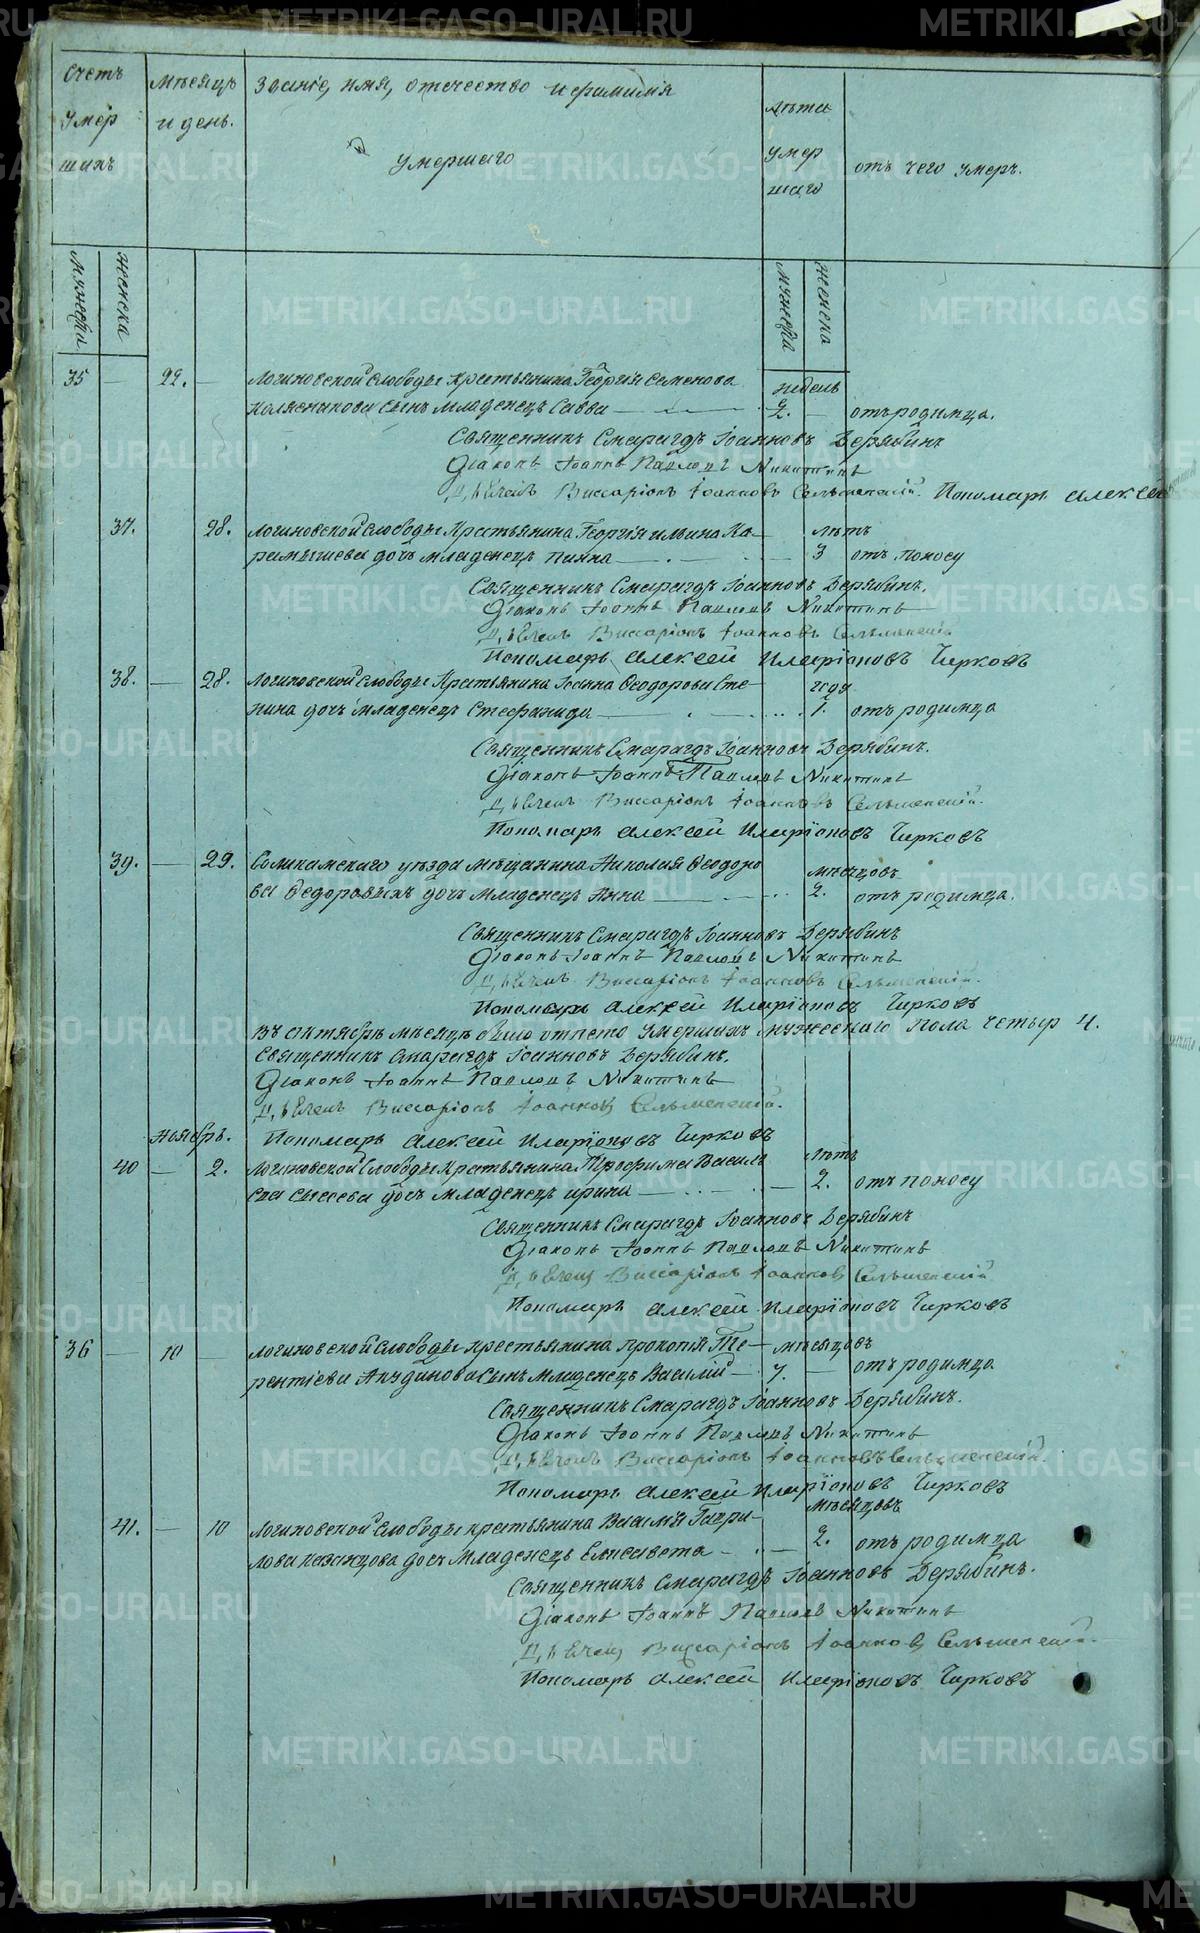 Счетъ умершихъ
Мѣсяцъ и день.
Званіе, имя, отечество и фамилія умершаго
лѣта умершаго
отъ чего умеръ.
мужска женска
мужеска женска
35 — 22. — Логиновской Слободы крестьянина Георгія Семенова недель
Колясникова сынъ младенецъ Савва — 2. — отъ родимца.
Священникъ Смарагдъ Іоанновъ Дерябинъ
Діаконъ Іоаннъ Павловъ Никитинъ
Дьячекъ Виссаріонъ Іоанновъ Сельменскій. Пономарь Алексей
37. 28. Логиновской Слободы Крестьянина Георгія Ильина Ка- лѣтъ
рамышева дочь младенецъ Пинна — 3 отъ поносу
Священникъ Смарагдъ Іоанновъ Дерябинъ.
Діаконъ Іоаннъ Павловъ Никитинъ
Дьячекъ Виссаріонъ Іоанновъ Сельменскій
Пономарь Алексей Иларіоновъ Чирковъ
38. — 28. Логиновской Слободы Крестьянина Іоанна Ѳеодорова Сте- году
нина дочь младенецъ Стефанида — 1. отъ родимца
Священникъ Смарагдъ Іоанновъ Дерябинъ.
Діаконъ Іоаннъ Павловъ Никитинъ
Дьячекъ Виссаріонъ Іоанновъ Сельменскій.
Пономарь Алексей Иларіоновъ Чирковъ
39. — 29. Соликамскаго уѣзда мѣщанина Николая Ѳеодоро мѣсяцовъ
ва Ѳедоровыхъ дочь младенецъ Анна — 2. отъ родимца.
Священникъ Смарагдъ Іоанновъ Дерябинъ
Діаконъ Іоаннъ Павловъ Никитинъ
Дьячекъ Виссаріонъ Іоанновъ Сельменскій.
Пономарь Алексей Иларіоновъ Чирковъ
Въ октябрѣ мѣсяцѣ было отпето умершихъ мужескаго пола четыр 4.
Священникъ Смарагдъ Іоанновъ Дерябинъ.
Діаконъ Іоаннъ Павловъ Никитинъ
Дьячекъ Виссаріонъ Іоанновъ Сельменскій.
Ноябрь. Пономарь Алексей Иларіоновъ Чирковъ
40 — 2. Логиновской Слободы Крестьянина Трофима Василь лѣтъ
ева Сысоева дочь младенецъ Ирина — 2. отъ поносу
Священникъ Смарагдъ Іоанновъ Дерябинъ
Діаконъ Іоаннъ Павловъ Никитинъ
Дьячекъ Виссаріонъ Іоанновъ Сельменскій
Пономарь Алексей Иларіоновъ Чирковъ
36 — 10 — Логиновской Слободы крестьянина Прокопія Те- мѣсяцовъ
рентіева сынъ младенецъ Василій — 7. — отъ родимца
Священникъ Смарагдъ Іоанновъ Дерябинъ.
Діаконъ Іоаннъ Павловъ Никитинъ
Дьячекъ Виссаріонъ Іоанновъ Сельменскій.
Пономарь Алексей Иларіоновъ Чирковъ
41. — 10 Логиновской Слободы крестьянина Василія Гаври- мѣсяцовъ
лова Казанцова дочь младенецъ Елисавета — 2. отъ родимца
Священникъ Смарагдъ Іоанновъ Дерябинъ.
Діаконъ Іоаннъ Павловъ Никитинъ
Дьячекъ Виссаріонъ Іоанновъ Сельменскій.
Пономарь Алексей Иларіоновъ Чирковъ
METRIKI.GASO-URAL.RU